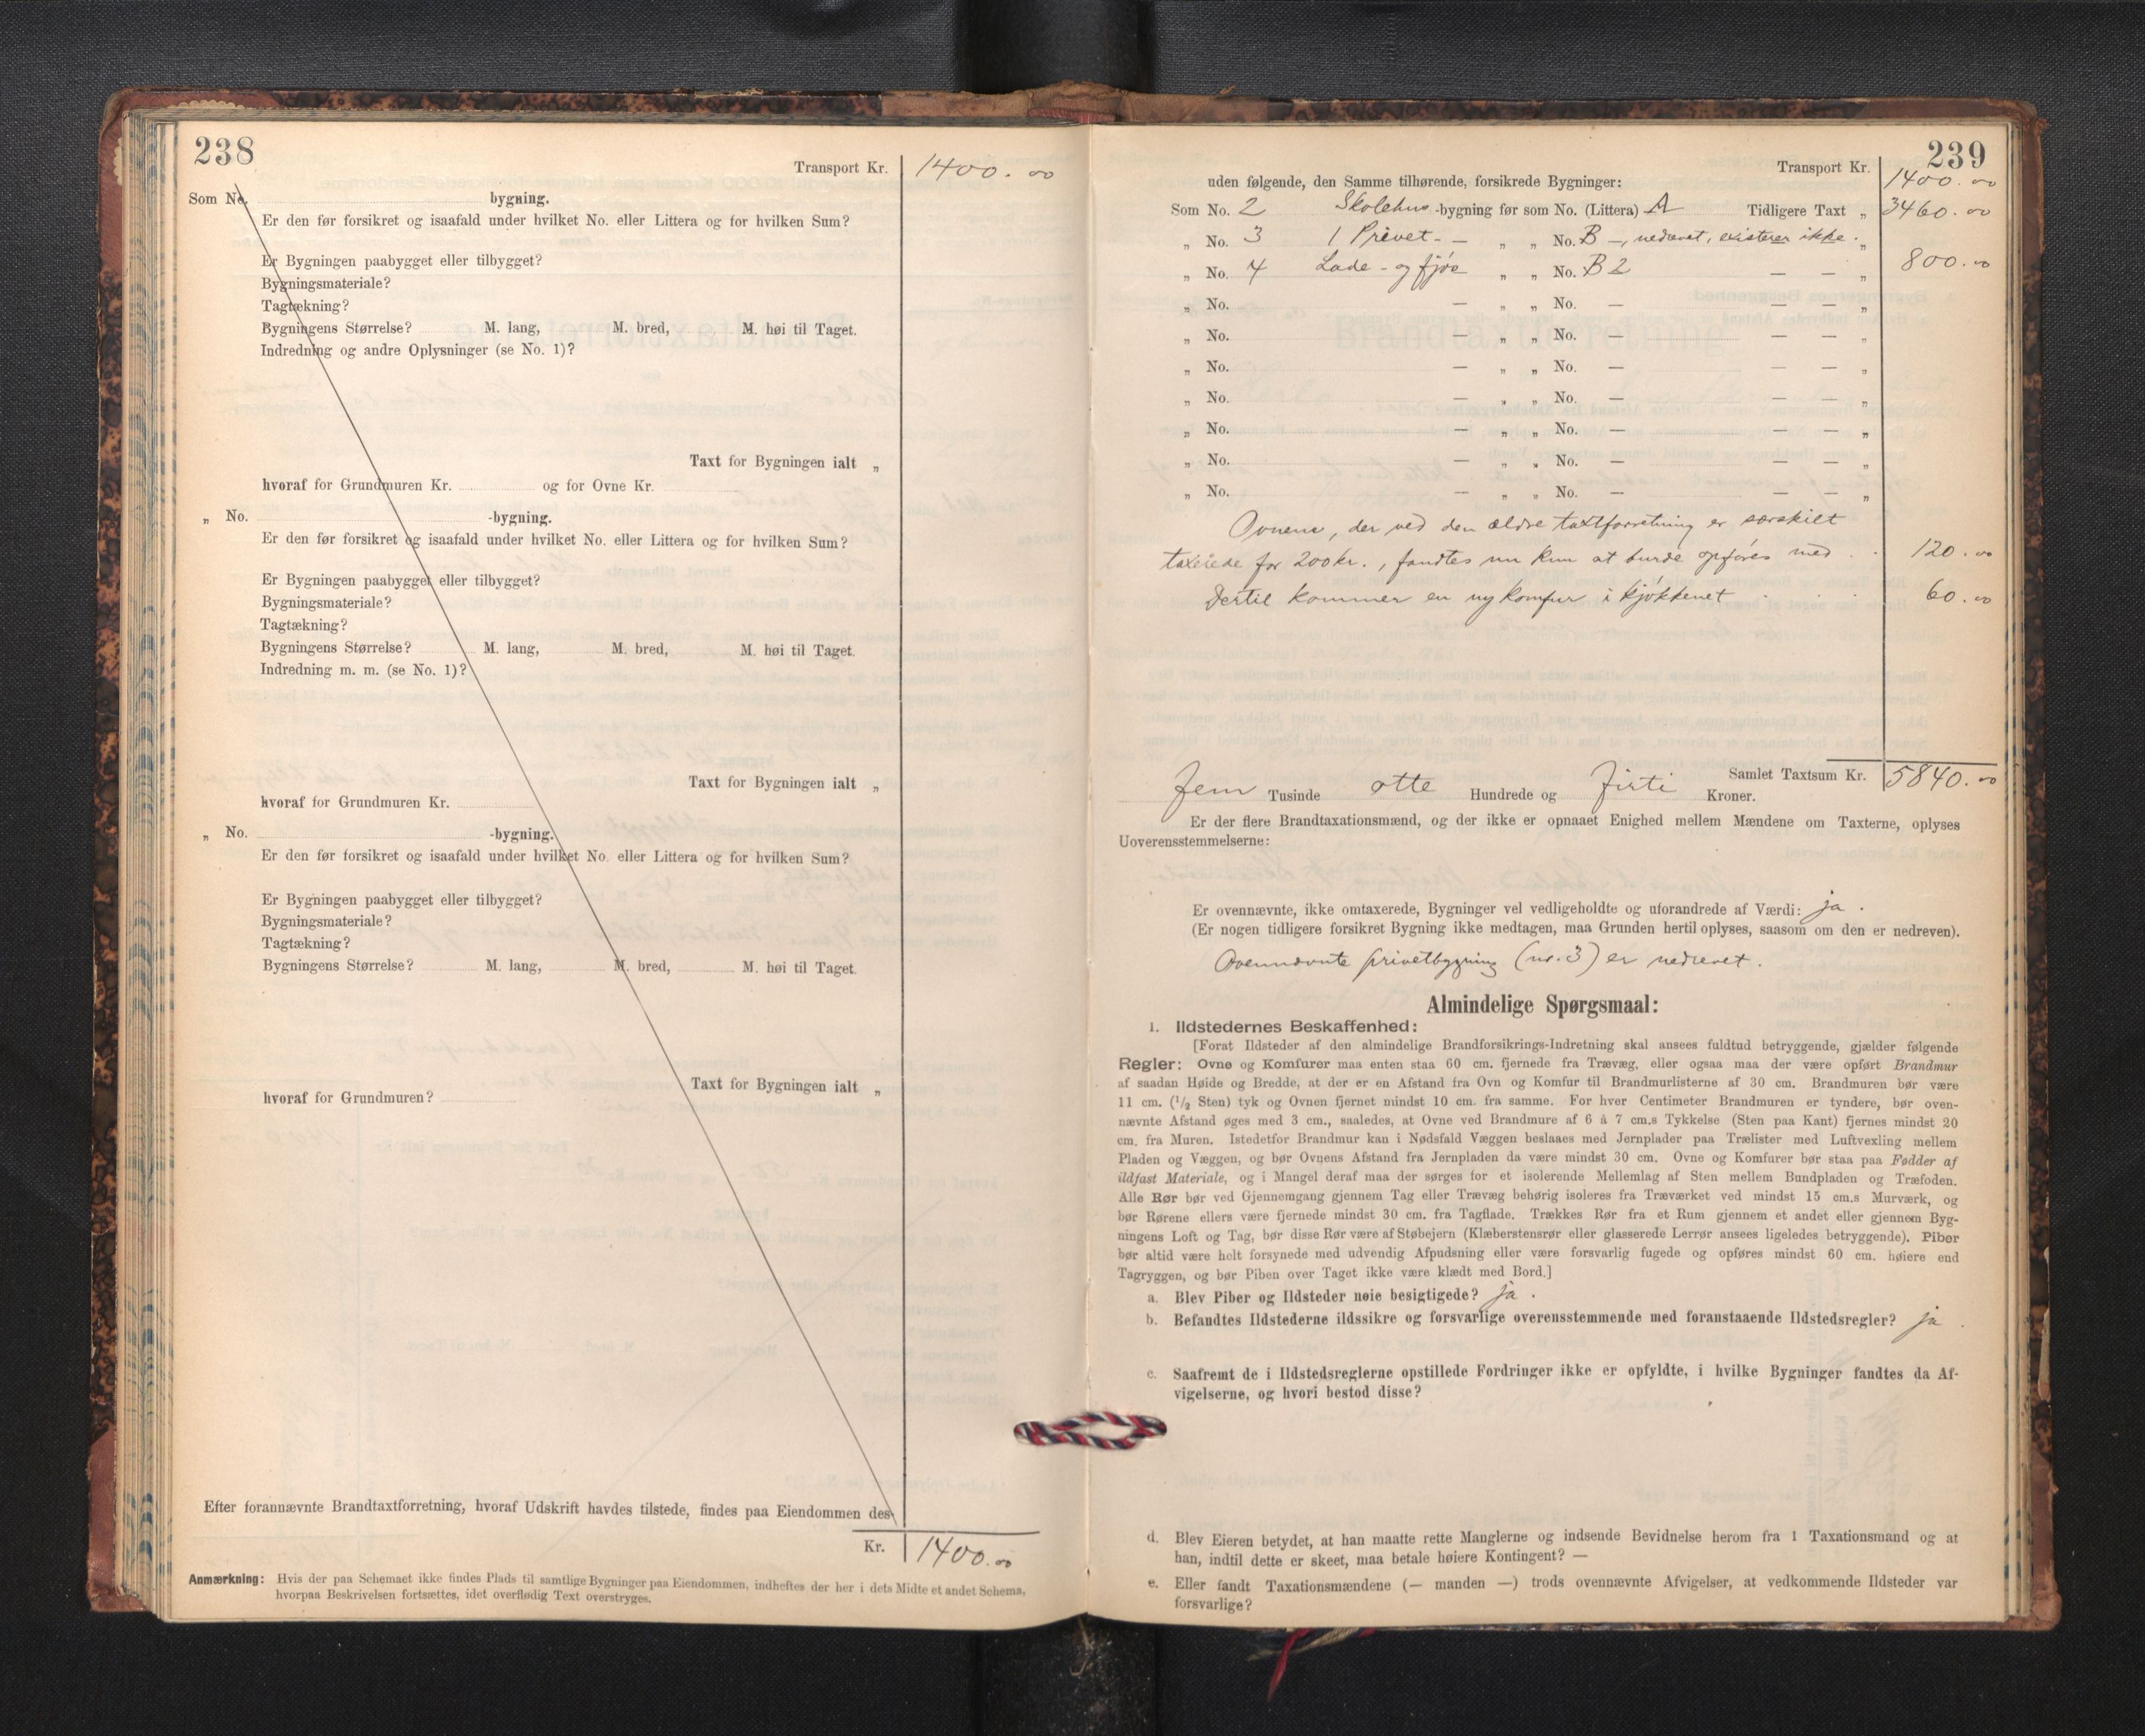 238
Transport Kr. 1400.00
Som No. bygning.
Er den før forsikret og isaafald under hvilket No. eller Littera og for hvilken Sum?
Er Bygningen paabygget eller tilbygget?
Bygningsmateriale?
Tagtækning?
Bygningens Størrelse? M. lang, M. bred, M. høi til Taget.
Indredning og andre Oplysninger (se No. 1)?
Taxt for Bygningen ialt „
hvoraf for Grundmuren Kr. og for Ovne Kr.
„ No. -bygning.
Er den før forsikret og isaafald under hvilket No. eller Littera og for hvilken Sum?
Er Bygningen paabygget eller tilbygget?
Bygningsmateriale?
Tagtækning?
Bygningens Størrelse? M. lang, M. bred, M. høi til Taget.
Indredning m. m. (se No. 1)?
Taxt for Bygningen ialt „
hvoraf for Grundmuren Kr.
„ No. -bygning.
Er den før forsikret og isaafald under hvilket No. eller Littera og for hvilken Sum?
Er Bygningen paabygget eller tilbygget?
Bygningsmateriale?
Tagtækning?
Bygningens Størrelse? M. lang, M. bred, M. høi til Taget.
Taxt for Bygningen ialt „
hvoraf for Grundmuren?
Efter forannævnte Brandtaxtforretning, hvoraf Udskrift havdes tilstede, findes paa Eiendommen des-
Kr. 1400.00
Anmærkning: Hvis der paa Schemaet ikke findes Plads til samtlige Bygninger paa Eiendommen, indheftes der her i dets Midte et andet Schema,
hvorpaa Beskrivelsen fortsættes, idet overflødig Text overstryges.
239
Transport Kr. 1400.00
uden følgende, den Samme tilhørende, forsikrede Bygninger:
Som No. 2 Skolehus -bygning før som No. (Littera) A Tidligere Taxt „ 3460.00
„ No. 3 1 Privet- — „ „ No. B —, nedrevet, existerer ikke. „
„ No. 4 Lade- og fjøs „ „ No. B 2 — — „ 800.00
„ No. — „ „ No. — — — „
„ No. — „ „ No. — — — „
„ No. — „ „ No. — — — „
„ No. — „ „ No. — — — „
„ No. — „ „ No. — — — „
„ No. — „ „ No. — — — „
„ No. — „ „ No. — — — „
Ovnene, der ved den ældre taxtforretning er særskilt
taxerede for 200 kr., fandtes nu kun at burde opføres med . . 120.00
Dertil kommer en ny komfur i kjøkkenet . . . 60.00
Samlet Taxtsum Kr. 5840.00
fem Tusinde otte Hundrede og firti Kroner.
Er der flere Brandtaxationsmænd, og der ikke er opnaaet Enighed mellem Mændene om Taxterne, oplyses
Uoverensstemmelserne:
Er ovennævnte, ikke omtaxerede, Bygninger vel vedligeholdte og uforandrede af Værdi: ja.
(Er nogen tidligere forsikret Bygning ikke medtagen, maa Grunden hertil oplyses, saasom om den er nedreven).
Ovennævnte privetbygning (no. 3) er nedrevet.
Almindelige Spørgsmaal:
1. Ildstedernes Beskaffenhed:
[Forat Ildsteder af den almindelige Brandforsikrings-Indretning skal ansees fuldtud betryggende, gjælder følgende
Regler: Ovne og Komfurer maa enten staa 60 cm. fjernede fra Trævæg, eller ogsaa maa der være opført Brandmur
af saadan Høide og Bredde, at der er en Afstand fra Ovn og Komfur til Brandmurlisterne af 30 cm. Brandmuren bør være
11 cm. (1/2 Sten) tyk og Ovnen fjernet mindst 10 cm. fra samme. For hver Centimeter Brandmuren er tyndere, bør oven-
nævnte Afstand øges med 3 cm., saaledes, at Ovne ved Brandmure af 6 à 7 cm.s Tykkelse (Sten paa Kant) fjernes mindst 20
cm. fra Muren. Istedetfor Brandmur kan i Nødsfald Væggen beslaaes med Jernplader paa Trælister med Luftvexling mellem
Pladen og Væggen, og bør Ovnens Afstand fra Jernpladen da være mindst 30 cm. Ovne og Komfurer bør staa paa Fødder af
ildfast Materiale, og i Mangel deraf maa der sørges for et isolerende Mellemlag af Sten mellem Bundpladen og Træfoden.
Alle Rør bør ved Gjennemgang gjennem Tag eller Trævæg behørig isoleres fra Træværket ved mindst 15 cm.s Murværk, og
bør Rørene ellers være fjernede mindst 30 cm. fra Tagflade. Trækkes Rør fra et Rum gjennem et andet eller gjennem Byg-
ningens Loft og Tag, bør disse Rør være af Støbejern (Klæberstensrør eller glasserede Lerrør ansees ligeledes betryggende). Piber
bør altid være helt forsynede med udvendig Afpudsning eller være forsvarlig fugede og opføres mindst 60 cm. høiere end
Tagryggen, og bør Piben over Taget ikke være klædt med Bord.]
a. Blev Piber og Ildsteder nøie besigtigede? ja.
b. Befandtes Ildstederne ildssikre og forsvarlige overensstemmende med foranstaaende Ildstedsregler? ja.
c. Saafremt de i Ildstedsreglerne opstillede Fordringer ikke er opfyldte, i hvilke Bygninger fandtes da Af-
vigelserne, og hvori bestod disse?
d. Blev Eieren betydet, at han maatte rette Manglerne og indsende Bevidnelse herom fra 1 Taxationsmand og at
han, indtil dette er skeet, maa betale høiere Kontingent? —
e. Eller fandt Taxationsmændene (— manden —) trods ovennævnte Afvigelser, at vedkommende Ildsteder var
forsvarlige?